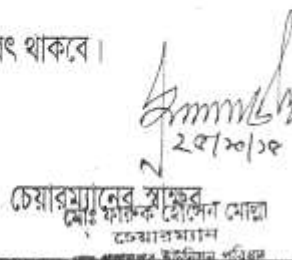 থাকবে।
২৫/১০/১৫
চেয়ারম্যানের স্বাক্ষর
মোঃ ফারুক হোসেন মোল্লা
চেয়ারম্যান
ইউনিয়ন পরিষদ